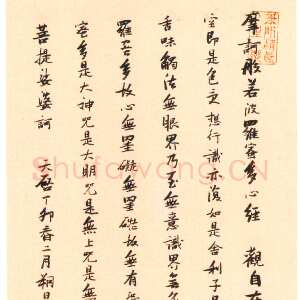 摩訶般若波羅蜜多心經 觀自在
空即是色受想行識亦復如是舍利子
舌味觸法無眼界乃至無意識界無
羅蜜多故心無罣礙無罣礙故無有
蜜多是大神咒是大明咒是無上咒是無
菩提娑婆訶 天啓丁卯春二月朔日
Shufawang.CN